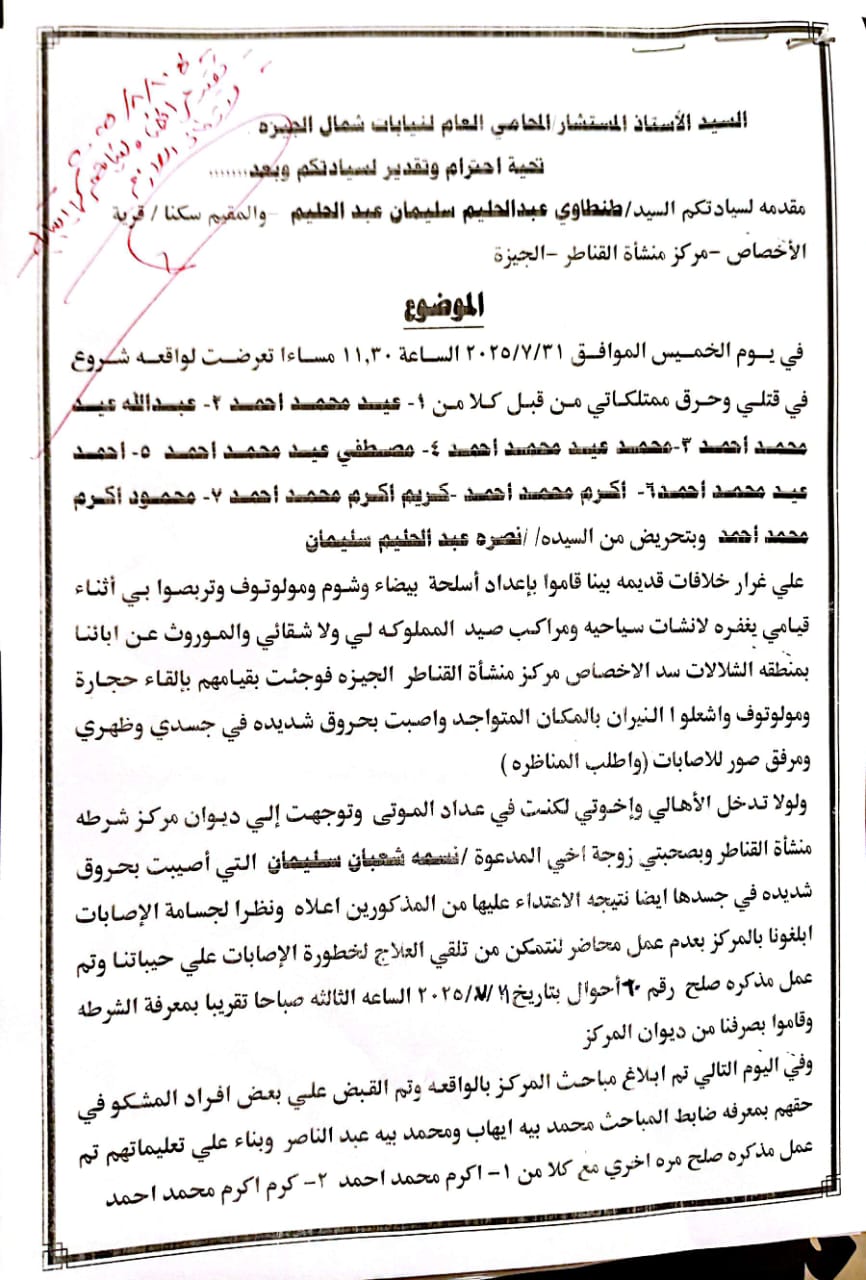 السيد الأستاذ المستشار/المحامي العام لنيابات شمال الجيزه
تحية احترام وتقدير لسيادتكم وبعد.......
مقدمه لسيادتكم السيد/طنطاوي عبدالحليم سليمان عبد الحليم -والمقيم سكنا / قرية
الأخصاص -مركز منشأة القناطر -الجيزة
الموضوع
في يوم الخميس الموافق ٢٠٢٥/٧/٣١ الساعة ١١,٣٠ مساءا تعرضت لواقعه شروع
في قتلي وحرق ممتلكاتي من قبل كلا من ١- عيد محمد احمد ٢- عبدالله عيد
محمد احمد ٣-محمد عيد محمد احمد ٤- مصطفي عيد محمد احمد ٥- احمد
عيد محمد احمد٦- اكرم محمد احمد -كريم اكرم محمد احمد ٧- محمود اكرم
محمد احمد وبتحريض من السيده/ /نصره عبد الحليم سليمان
علي غرار خلافات قديمه بينا قاموا بإعداد أسلحة بيضاء وشوم ومولوتوف وتربصوا بي أثناء
قيامي بغفره لانشات سياحيه ومراكب صيد المملوكه لي ولا شقائي والموروث عن ابائنا
بمنطقه الشلالات سد الاخصاص مركز منشأة القناطر الجيزه فوجئت بقيامهم بإلقاء حجارة
ومولوتوف واشعلوا النيران بالمكان المتواجد واصبت بحروق شديده في جسدي وظهري
ومرفق صور للاصابات (واطلب المناظره )
ولولا تدخل الأهالي وإخوتي لكنت في عداد الموتى وتوجهت إلي ديوان مركز شرطه
منشأة القناطر وبصحبتي زوجة اخي المدعوة /نسمه شعبان سليمان التي أصيبت بحروق
شديده في جسدها ايضا نتيجه الاعتداء عليها من المذكورين اعلاه ونظرا لجسامة الإصابات
ابلغونا بالمركز بعدم عمل محاضر لنتمكن من تلقي العلاج لخطورة الإصابات علي حيباتنا وتم
عمل مذكره صلح رقم أحوال بتاريخ ٢٠٢٥/ الساعه الثالثه صباحا تقريبا بمعرفة الشرطه
وقاموا بصرفنا من ديوان المركز
وفي اليوم التالي تم ابلاغ مباحث المركز بالواقعه وتم القبض علي بعض افراد المشكو في
حقهم بمعرفه ضابط المباحث محمد بيه ايهاب ومحمد بيه عبد الناصر وبناء علي تعليماتهم تم
عمل مذكره صلح مره اخري مع كلا من ١- اكرم محمد احمد ٢- كرم اكرم محمد احمد